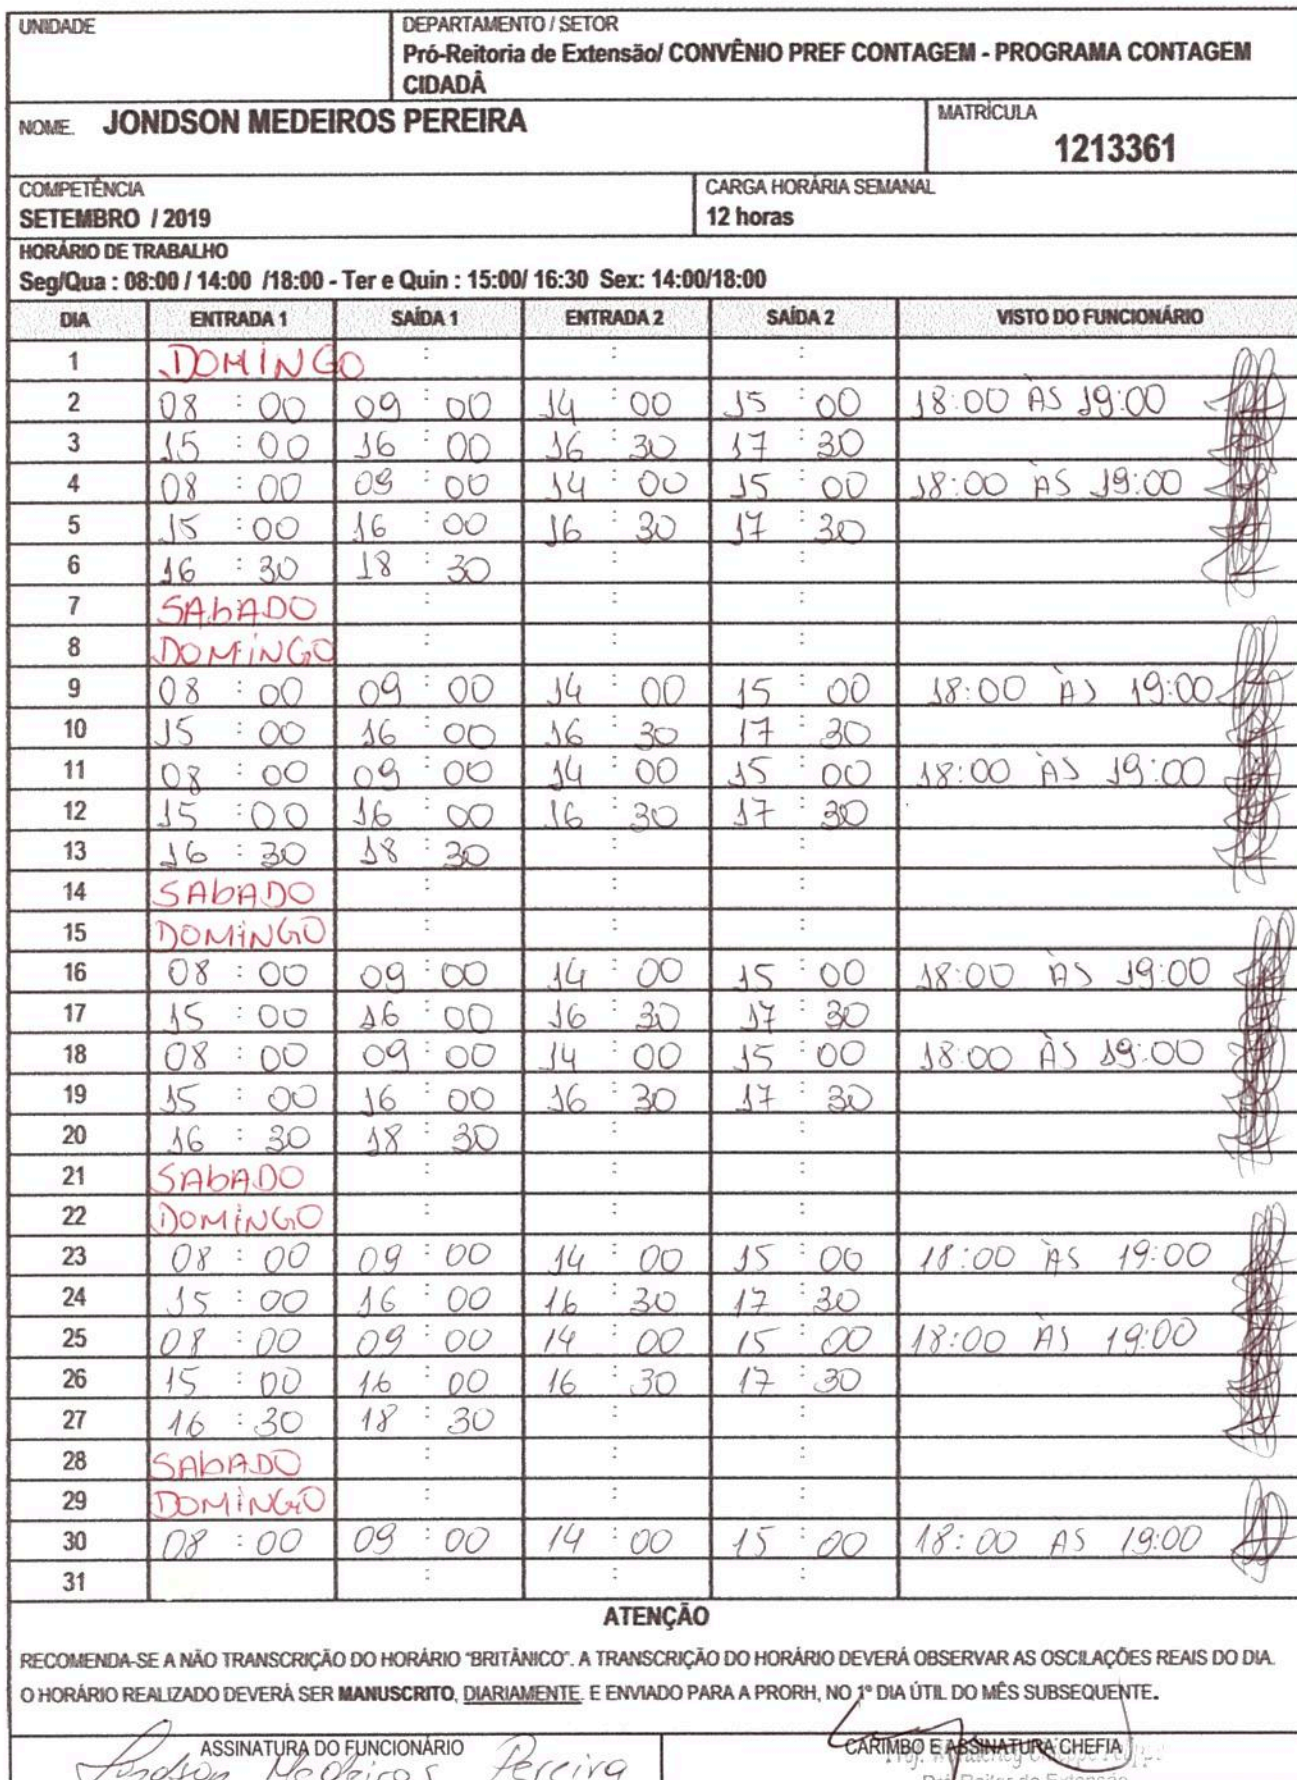 UNIDADE
DEPARTAMENTO / SETOR
Pró-Reitoria de Extensão/ CONVÊNIO PREF CONTAGEM - PROGRAMA CONTAGEM
CIDADÂ
NOME. JONDSON MEDEIROS PEREIRA
MATRÍCULA
1213361
COMPETÊNCIA
SETEMBRO / 2019
CARGA HORÁRIA SEMANAL
12 horas
HORÁRIO DE TRABALHO
Seg/Qua : 08:00 / 14:00 /18:00 - Ter e Quin : 15:00/ 16:30 Sex: 14:00/18:00
DIA ENTRADA 1 SAÍDA 1 ENTRADA 2 SAÍDA 2 VISTO DO FUNCIONÁRIO
1 DOMINGO : : :
2 08 : 00 09 : 00 14 : 00 15 : 00 18:00 ÀS 19:00
3 15 : 00 16 : 00 16 : 30 17 : 30
4 08 : 00 09 : 00 14 : 00 15 : 00 18:00 ÀS 19:00
5 15 : 00 16 : 00 16 : 30 17 : 30
6 16 : 30 18 : 30 : :
7 SAbADO : : :
8 DOMINGO : : :
9 08 : 00 09 : 00 14 : 00 15 : 00 18:00 ÀS 19:00
10 15 : 00 16 : 00 16 : 30 17 : 30
11 08 : 00 09 : 00 14 : 00 15 : 00 18:00 ÀS 19:00
12 15 : 00 16 : 00 16 : 30 17 : 30
13 16 : 30 18 : 30 : :
14 SAbADO : : :
15 DOMINGO : : :
16 08 : 00 09 : 00 14 : 00 15 : 00 18:00 ÀS 19:00
17 15 : 00 16 : 00 16 : 30 17 : 30
18 08 : 00 09 : 00 14 : 00 15 : 00 18:00 ÀS 19:00
19 15 : 00 16 : 00 16 : 30 17 : 30
20 16 : 30 18 : 30 : :
21 SAbADO : : :
22 DOMINGO : : :
23 08 : 00 09 : 00 14 : 00 15 : 00 18:00 ÀS 19:00
24 15 : 00 16 : 00 16 : 30 17 : 30
25 08 : 00 09 : 00 14 : 00 15 : 00 18:00 ÀS 19:00
26 15 : 00 16 : 00 16 : 30 17 : 30
27 16 : 30 18 : 30 : :
28 SAbADO : : :
29 DOMINGO : : :
30 08 : 00 09 : 00 14 : 00 15 : 00 18:00 AS 19:00
31 : : :
ATENÇÃO
RECOMENDA-SE A NÃO TRANSCRIÇÃO DO HORÁRIO "BRITÂNICO". A TRANSCRIÇÃO DO HORÁRIO DEVERÁ OBSERVAR AS OSCILAÇÕES REAIS DO DIA.
O HORÁRIO REALIZADO DEVERÁ SER MANUSCRITO, DIARIAMENTE. E ENVIADO PARA A PRORH, NO 1º DIA ÚTIL DO MÊS SUBSEQUENTE.
ASSINATURA DO FUNCIONÁRIO
Jondson Medeiros Pereira
CARIMBO E ASSINATURA CHEFIA
Prof.
Pró-Reitor de Extensão